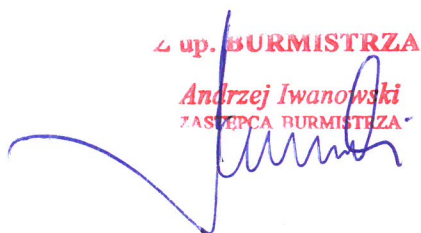 Z up. BURMISTRZA
Andrzej Iwanowski
ZASTĘPCA BURMISTRZA